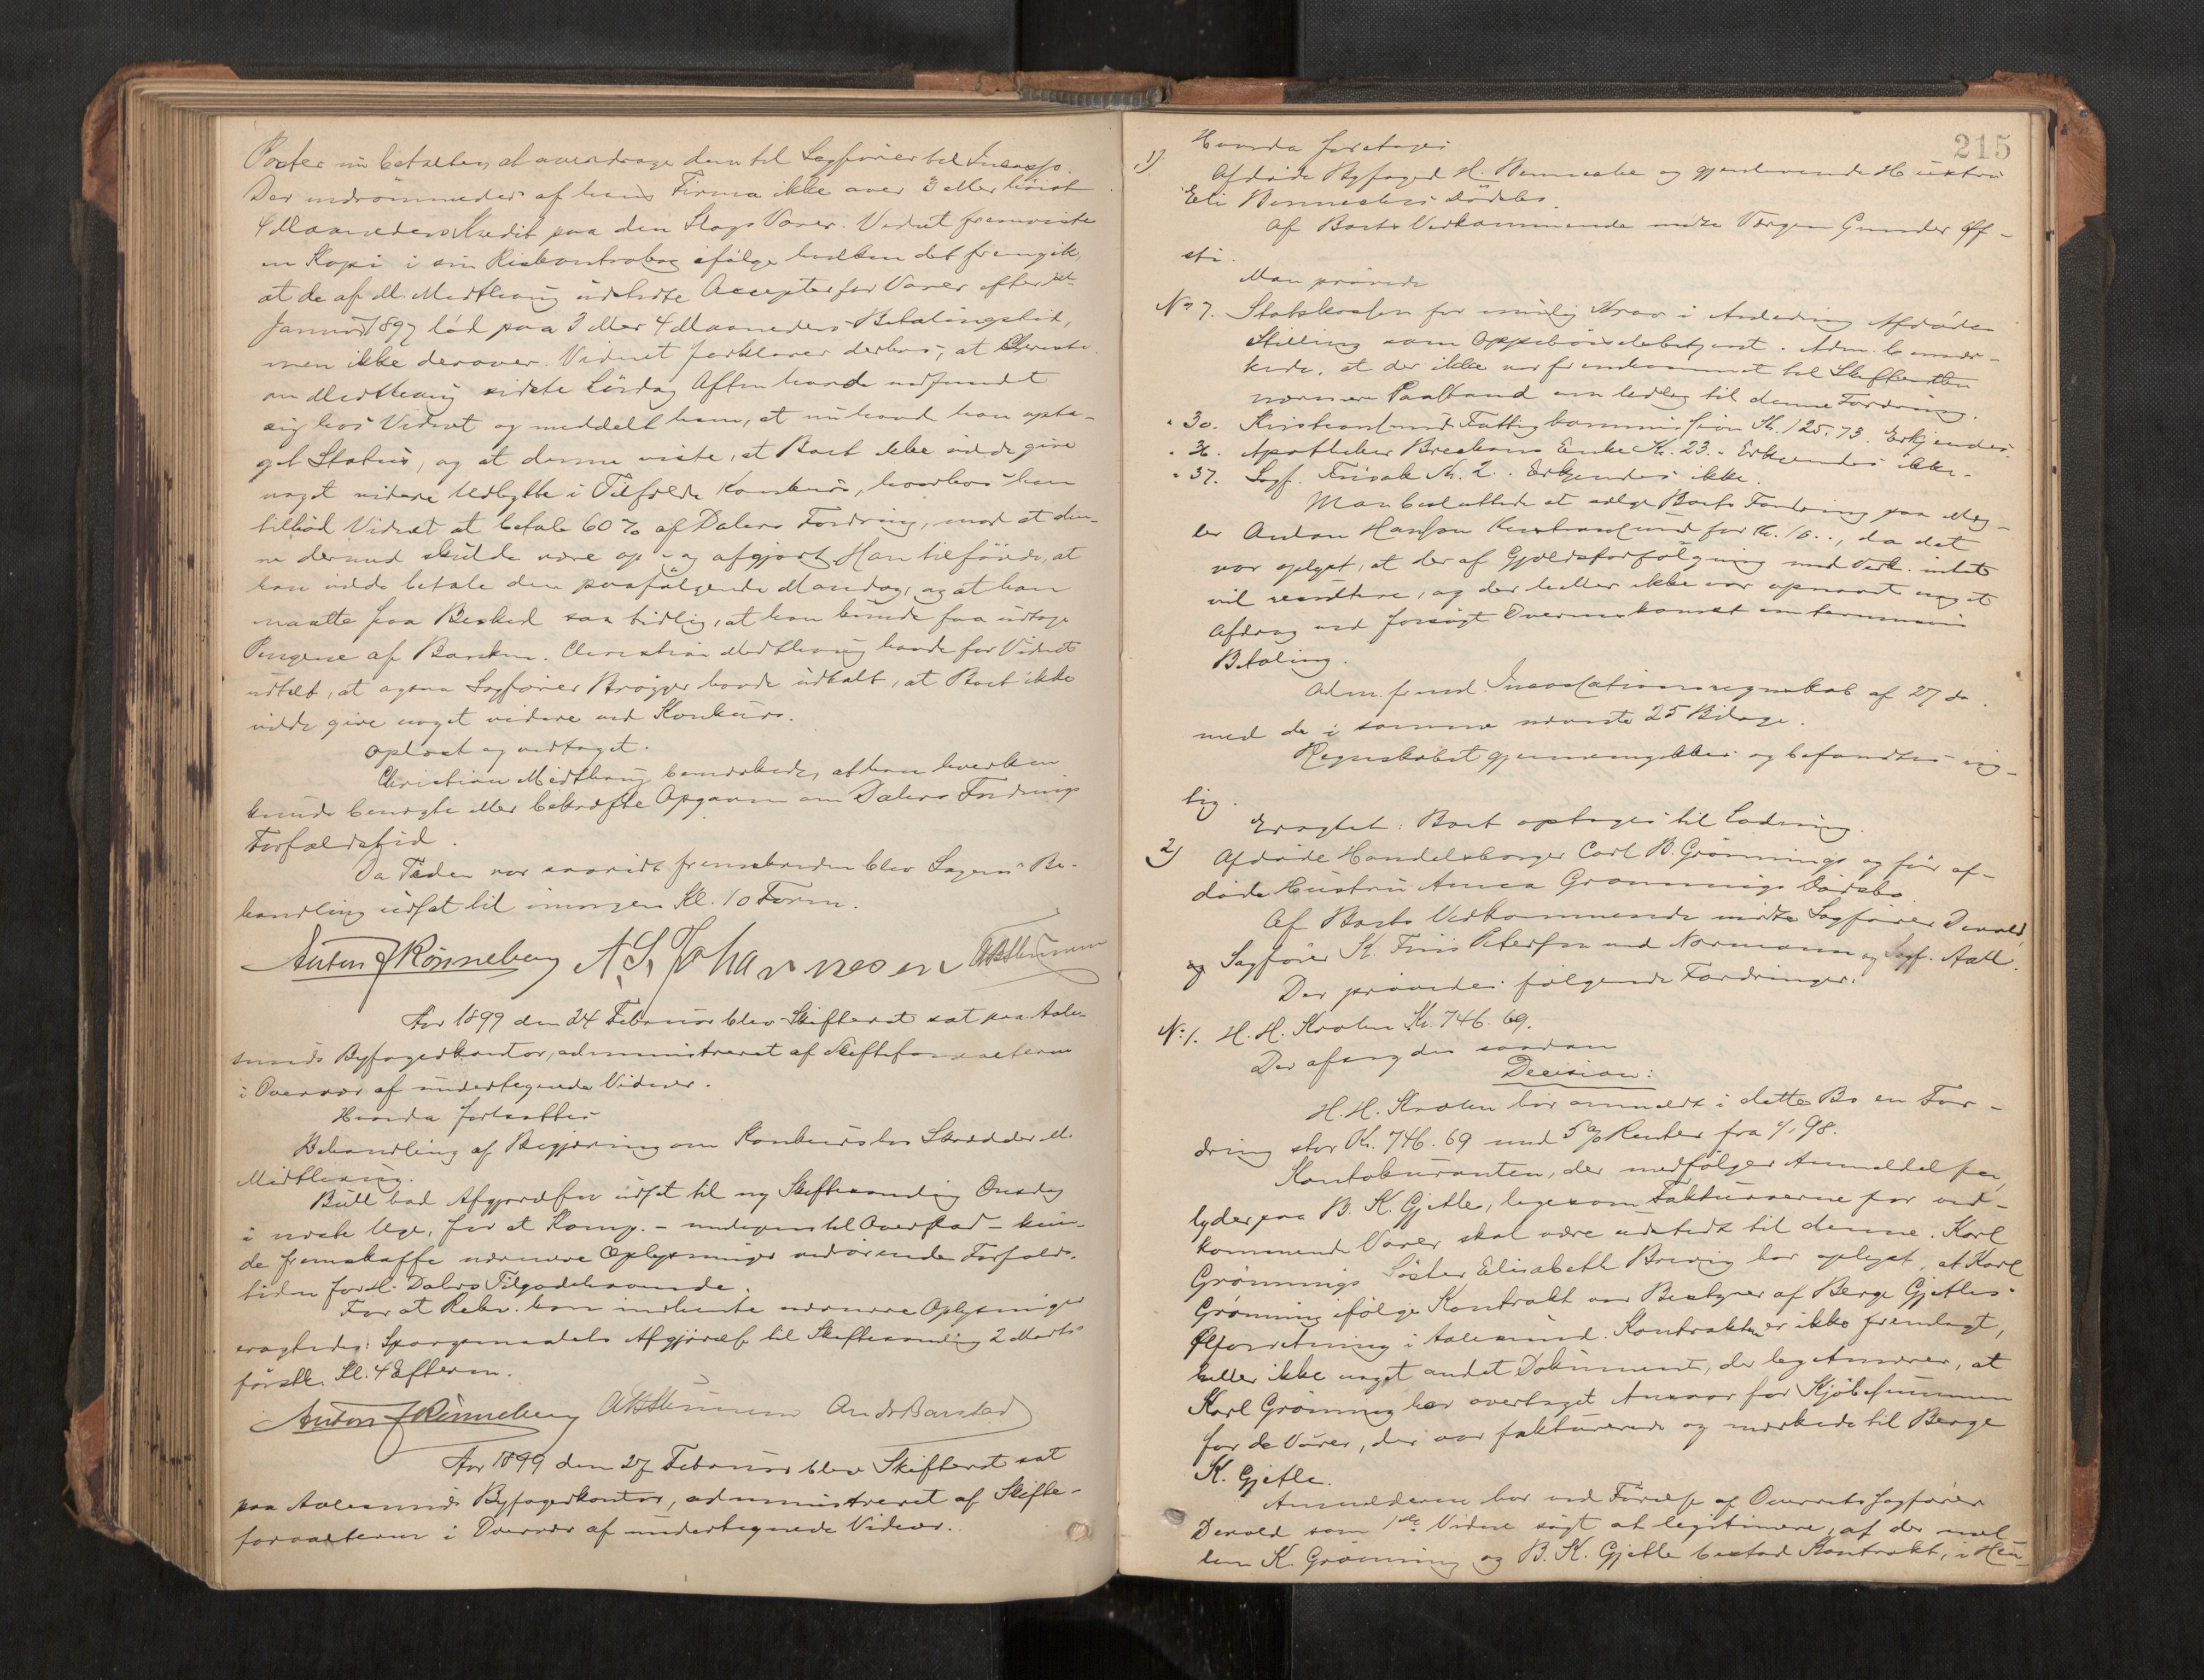 Poster nu betaltes, at overdrage dem til Sagfører til Incasso.
Der indrømmedes af hans Firma ikke over 3 eller høist
4 Maaneders Kredit paa den Slags Varer. Vidnet fremviste
en Kopi i sin Riskontrobog ifølge hvilken det fremgik,
at de af M. Midthaug udstedte Accepter for Varer efter
Januar 1897 lød paa 3 eller 4 Maaneders Betalingstid,
men ikke derover. Vidnet forklarer derhos, at Christi-
an Midthaug sidste Lørdag Aften havde indfundet
sig hos Vidnet og meddelt ham, at nu havde han opta-
get Status, og at denne viste, at Boet ikke vilde give
noget videre Udbytte i Tilfælde Konkurs, hvorhos han
tilbød Vidnet at betale 60 % af Dalers Fordring, mod at den-
ne dermed skulde være op- og afgjort. Han tilføiede, at
han vilde betale den paafølgende Mandag, og at han
maatte faa Besked saa tidlig, at han kunde faa udtage
Pengene af Banken. Christian Midthaug havde for Vidnet
udtalt, at ogsaa Sagfører Brøgger havde udtalt, at Boet ikke
vilde give noget videre ved Konkurs.
Oplæst og vedtaget.
Christian Midthaug bemærkede, at han hverken
kunde benægte eller bekræfte Opgaven om Dalers Fordrings
Forfaldstid.
Da Tiden var saavidt fremskreden blev Sagens Be-
handling udsat til imorgen Kl. 10 Form.
Anton J Rønneberg A. S. Johannesen
Aar 1899 den 24 Februar blev Skifteret sat paa Aale-
sunds Byfogedkontor, administreret af Skifteforvalteren
i Overvær af undertegnede Vidner.
Hvorda fortsattes
Behandling af Begjæring om Konkurs hos Skrædder M.
Midthaug.
Bull bad Afgjørelsen udsat til ny Skiftesamling Onsdag
i næste Uge, for at Komp. – – kun-
de fremskaffe nærmere Oplysninger vedrørende Forfalds-
tiden for H. Dalers Tilgodehavende.
For at Rekv. kan indhente nærmere Oplysninger
eragtedes: Spørgsmaalets Afgjørelse til Skiftesamling 2 Marts
førstk. Kl. 4 Efterm.
Anton J Rønneberg And Barstad
Aar 1899 den 27 Februar blev Skifteret sat
paa Aalesunds Byfogedkontor, administreret af Skifte-
forvalteren i Overvær af undertegnede Vidner.
215
Hvorda foretoges
1) Afdøde Byfoged H. Benneche og gjenlevende Hustru
Eli Benneches Dødsbo.
Af Boets Vedkommende mødte Værgen Gunder Øf-
sti.
Man prøvede
No 7. Statskassen for mulig Krav i Anledning Afdødes
Stilling som Oppebørselsbetjent. Adm. bemær-
kede, at der ikke var fremkommet til Skifteretten
nærmere Paastand om Udlæg til denne Fordring.
" 30. Kristiansunds Fattigkommission Kr. 125.73. Erkjendes.
" 36. Apotheker Enke Kr. 23.- Erkjendes ikke.
" 37. Sagf. Frisak Kr. 2.. Erkjendes ikke.
Man besluttede at sælge Boets Fordring paa Mæg-
ler Anton Hansen Kristiansund for Kr. 10.., da det
var oplyst, at der af Gjældsforfølgning mod Vedk. intet
vil resultere, og der heller ikke var opnaaet noget
Afdrag ved forsøgt Overenskomst om terminvis
Betaling.
Adm. freml. Incassationsregnskab af 27 ds.
med de i samme nævnte 25 Bilage.
Regnskabet gjennemgikkes og befandtes rig-
tig.
Eragtet: Boet optages til Lodning.
2) Afdøde Handelsborger Carl B. Grønnings og før af-
døde Hustru Anna Grønnings Dødsbo.
Af Boets Vedkommende mødte Sagfører Devold,
og Sagfører K. Friis Petersen ved Normann og Sagf. Aall.
Der prøvedes følgende Fordringer:
No 1. H. H. Krohn Kr. 746.69.
Der afsagdes saadan
Decision:
H. H. Krohn har anmeldt i dette Bo en For-
dring stor Kr. 746.69 med 5 % Renter fra 1/1 98.
Kontokuranten, der medfølger Anmeldelsen,
lyder paa B. K. Gjetle, ligesom Fakturaerne for ved-
kommende Varer skal være udstedt til denne. Karl
Grønnings Søster Elisabeth Brevig har oplyst, at Karl
Grønning ifølge Kontrakt var Bestyrer af Berge Gjetles
Ølforretning i Aalesund. Kontrakten er ikke fremlagt,
heller ikke noget andet Dokument, der legitimerer, at
Karl Grønning har overtaget Ansvar for Kjøbesummen
for de Varer, der var fakturerede og mærkede til Berge
K. Gjetle.
Anmelderen har ved Førelse af Overretssagfører
Devold som 1ste Vidne søgt at legitimere, at der mel-
lem K. Grønning og B. K. Gjetle bestod Kontrakt, i Hen-